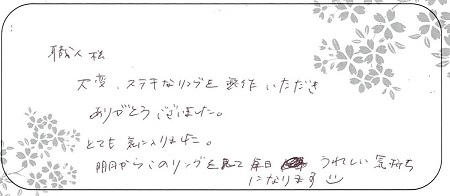 職人様
大変、ステキなリングを製作いただき
ありがとうございました。
とても気に入りました。
明日からこのリングを見て毎日うれしい気持ち
になります